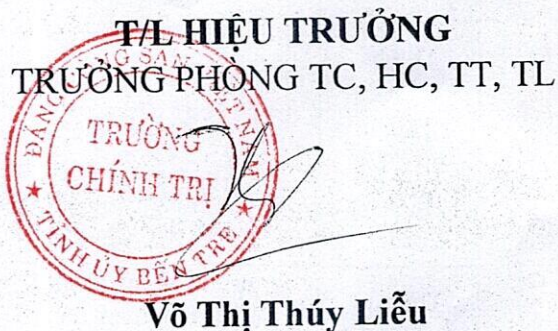 T/L HIỆU TRƯỞNG
TRƯỞNG PHÒNG TC, HC, TT, TL
ĐẢNG CỘNG SẢN VIỆT NAM
TRƯỜNG
CHÍNH TRỊ
TỈNH ỦY BẾN TRE
Võ Thị Thúy Liễu